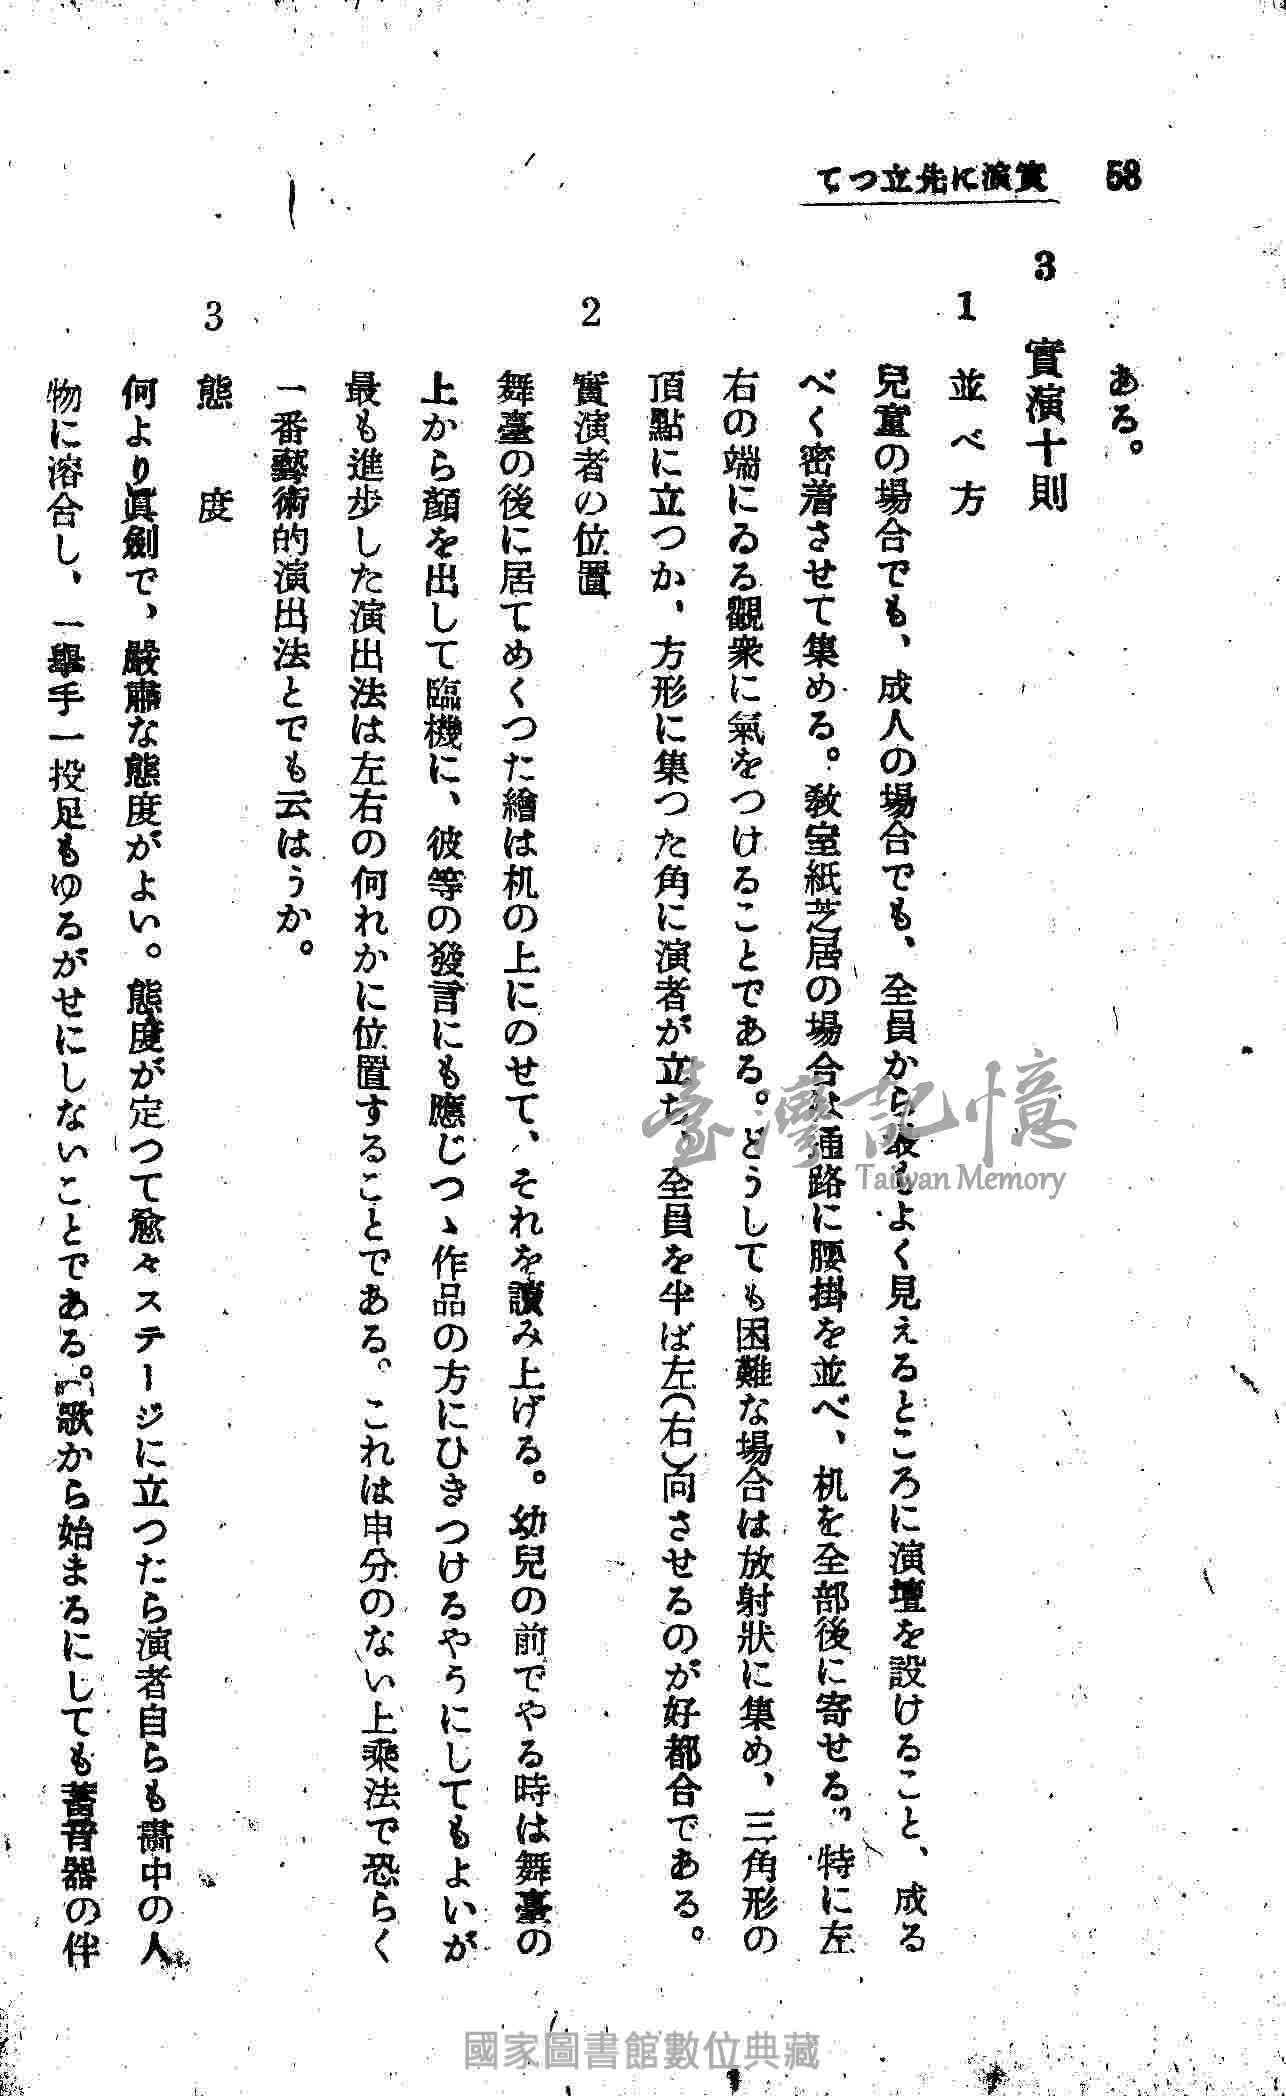 58
てつ立先に演實
ある。
3 實演十則
1 並べ方
兒童の場合でも、成人の場合でも、全員から最もよく見えるところに演壇を設けること、成る
べく密着させて集める。敎室紙芝居の場合は通路に腰掛を並べ、机を全部後に寄せる。特に左
右の端にゐる觀衆に氣をつけることである。どうしても困難な場合は放射狀に集め、三角形の
頂點に立つか、方形に集つた角に演者が立ち、全員を半ば左(右)向させるのが好都合である。
2 實演者の位置
舞臺の後に居てめくつた繪は机の上にのせて、それを讀み上げる。幼兒の前でやる時は舞臺の
上から顏を出して臨機に、彼等の發言にも應じつゝ作品の方にひきつけるやうにしてもよいが
最も進步した演出法は左右の何れかに位置することである。これは申分のない上乘法で恐らく
一番藝術的演出法とでも云はうか。
3 態度
何より眞劍で、嚴肅な態度がよい。態度が定つて愈々ステージに立つたら演者自らも畵中の人
物に溶合し、一擧手一投足もゆるがせにしないことである。歌から始まるにしても蓄音器の伴
臺灣記憶
Taiwan Memory
國家圖書館數位典藏